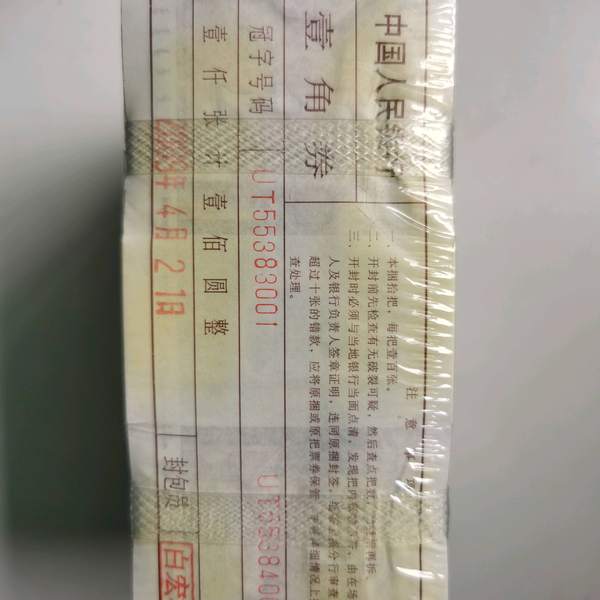 中国人民银行
壹角券
冠字号码 UT55383001 UT5538400
壹仟张计壹佰圆整
年4月21日 封包员 白宏
注意
一、本捆拾把，每把壹百张。
二、开封前先检查有无破裂可疑，然后查点把数，再拆
三、开封时必须与当地银行当面点清，发现把内 由在场
人及银行负责人签章证明，连同原捆封签， 分行审查
超过十张的错款，应将原捆或原把票券保管 情况上
查处理。